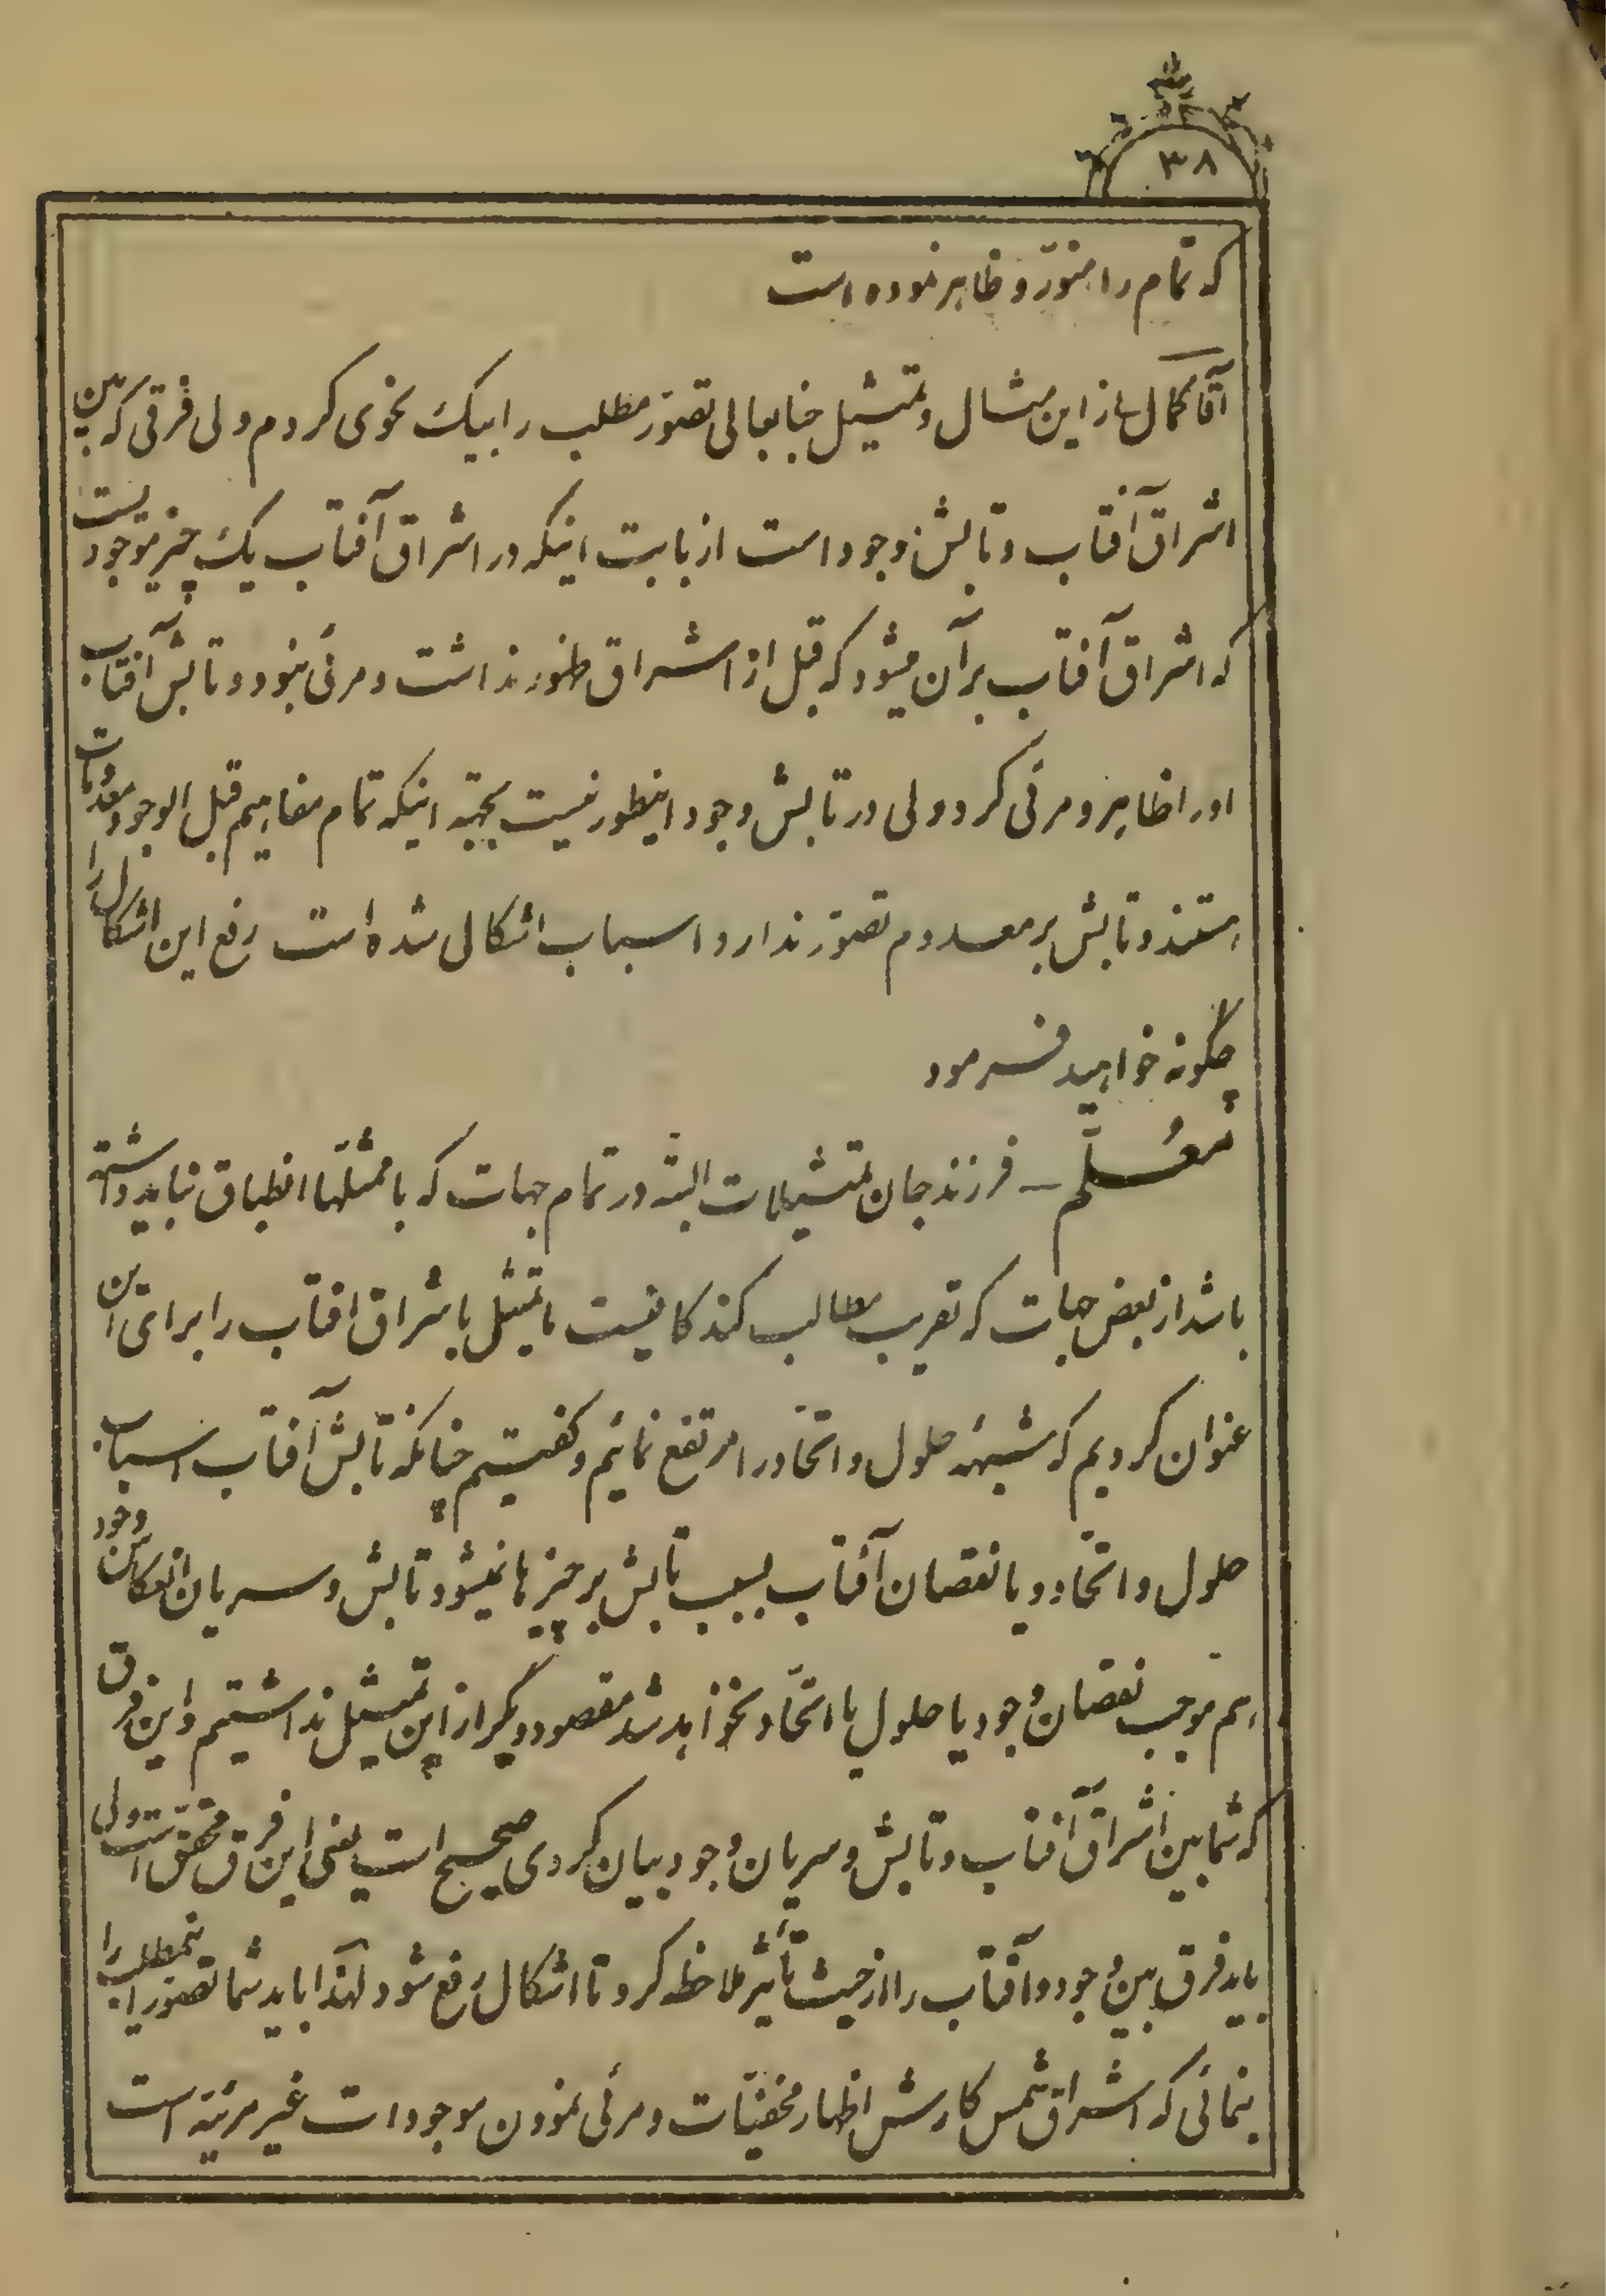 ۳۸
که تمام را منوّر و ظاهر نموده است
آقا کمال از این مثال و تمثیل جنابعالی تصوّر مطلب را بیک نحوی کردم ولی فرقی که بین
اشراق آفتاب و تابش وجود است از بابت اینکه در اشراق آفتاب یک چیز موجودیست
که اشراق آفتاب بر آن میشود که قبل از اشراق ظهور نداشت و مرئی نبود و تابش آفتاب
او را ظاهر و مرئی کرد ولی در تابش وجود اینطور نیست بجهته اینکه تمام مفاهیم قبل الوجود معدومات
هستند و تابش بر معدوم تصوّر ندارد اسباب اشکالی شده است رفع این اشکال را
چگونه خواهید فرمود
معلّم ـ فرزند جان تمثیلات البتّه در تمام جهات که با ممثّلها انطباق نباید داشته
باشد از بعض جهات که تقریب مطالب کند کافیست ما تمثیل باشراق افتاب را برای این
عنوان کردیم که شبهه حلول و اتّحاد را مرتفع نمائیم و گفتیم چنانکه تابش آفتاب اسباب
حلول و اتّحاد و یا نقصان آفتاب بسبب تابش بر چیزها نمیشود تابش و سریان انعکاس وجود
هم موجب نقصان وجود یا حلول یا اتّحاد نخواهد شد مقصود دیگر از این تمثیل نداشتیم و این فرق
که شما بین اشراق آفتاب و تابش و سریان وجود بیان کردی صحیح است یعنی این فرق محقّق است ولی
باید فرق بین وجود و آفتاب را از حیث تأثیر ملاحظه کرد تا اشکال رفع شود لهذا باید شما تصوّر اینمطلب را
بنمائی که اشراق شمس کارش اظهار مخفیّات و مرئی نمودن موجودات غیر مرئیّه است